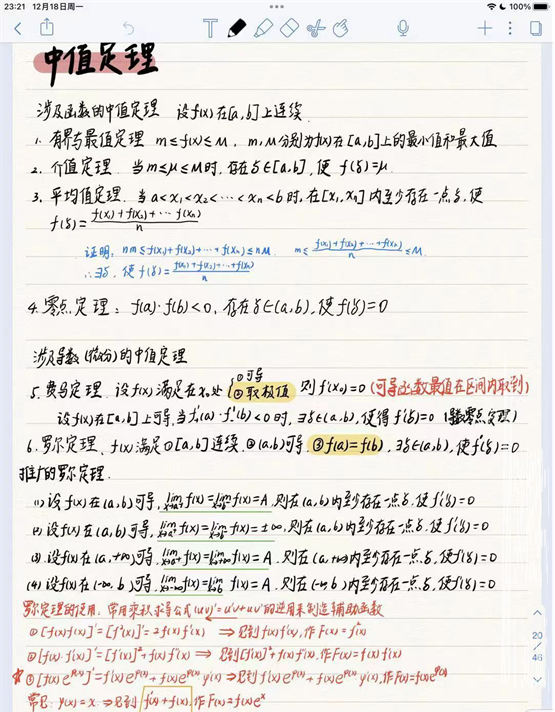 23:21 12月18日周一
100%
中值定理
涉及函数的中值定理 设f(x)在[a,b]上连续
1. 有界与最值定理 m≤f(x)≤M, m,M分别为f(x)在[a,b]上的最小值和最大值
2. 介值定理 当m≤μ≤M时,存在ξ∈[a,b],使 f(ξ)=μ
3. 平均值定理. 当a<x₁<x₂<…<xₙ<b时,在[x₁,xₙ]内至少存在一点ξ,使
f(ξ)=(f(x₁)+f(x₂)+…f(xₙ))/n
证明: nm≤f(x₁)+f(x₂)+…+f(xₙ)≤nM. m≤(f(x₁)+f(x₂)+…+f(xₙ))/n≤M
∴∃ξ, 使f(ξ)=(f(x₁)+f(x₂)+…+f(xₙ))/n
4. 零点定理: f(a)·f(b)<0, 存在ξ∈(a,b),使f(ξ)=0
涉及导数(微分)的中值定理
5. 费马定理. 设f(x)满足在x₀处{①可导 ②取极值 则f'(x₀)=0 (可导函数最值在区间内取到)
设f(x)在[a,b]上可导,当f'₊(a)·f'₋(b)<0时,∃ξ∈(a,b),使得f'(ξ)=0 (导数零点定理)
6. 罗尔定理. f(x)满足①[a,b]连续.②(a,b)可导.③f(a)=f(b), ∃ξ∈(a,b),使f'(ξ)=0
推广的罗尔定理.
(1)设f(x)在(a,b)可导, lim x→a⁺ f(x)=lim x→b⁻ f(x)=A.则在(a,b)内至少存在一点ξ.使f'(ξ)=0
(2)设f(x)在(a,b)可导, lim x→a⁺ f(x)=lim x→b⁻ f(x)=±∞,则在(a,b)内至少存在一点ξ,使f'(ξ)=0
(3)设f(x)在(a,+∞)可导, lim x→a⁺ f(x)=lim x→+∞ f(x)=A. 则在(a,+∞)内至少存在一点ξ,使f'(ξ)=0
(4)设f(x)在(-∞,b)可导, lim x→-∞ f(x)=lim x→b⁻ f(x)=A. 则在(-∞,b)内至少存在一点ξ,使f'(ξ)=0
罗尔定理的使用,常用乘积求导公式(uv)'=u'v+uv'的逆用来制造辅助函数
①[f(x)f(x)]'=[f²(x)]'=2f(x)f'(x) ⇒见到f(x)f'(x),作F(x)=f²(x)
②[f(x)·f'(x)]'=[f'(x)]²+f(x)f''(x) ⇒见到[f'(x)]²+f(x)f''(x),作F(x)=f(x)f'(x)
☆③[f(x)e^φ(x)]'=f'(x)e^φ(x)+f(x)e^φ(x)φ'(x) ⇒见到f'(x)+f(x)φ'(x),作F(x)=f(x)e^φ(x)
常见: φ(x)=x ⇒见到f'(x)+f(x),作F(x)=f(x)eˣ
20
46